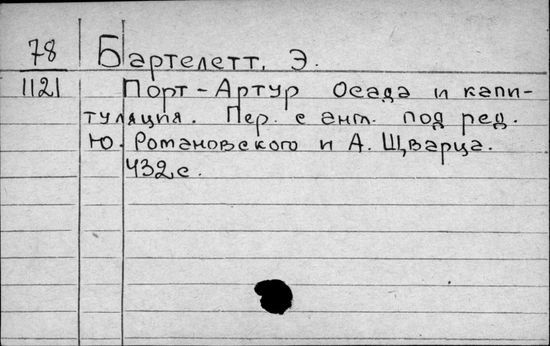 78 Бартелетт, Э.
1121 Порт-Артур Осада и капи-
туляция. Пер. с англ. под ред.
Ю. Романовского и А. Щварца.
432 с.